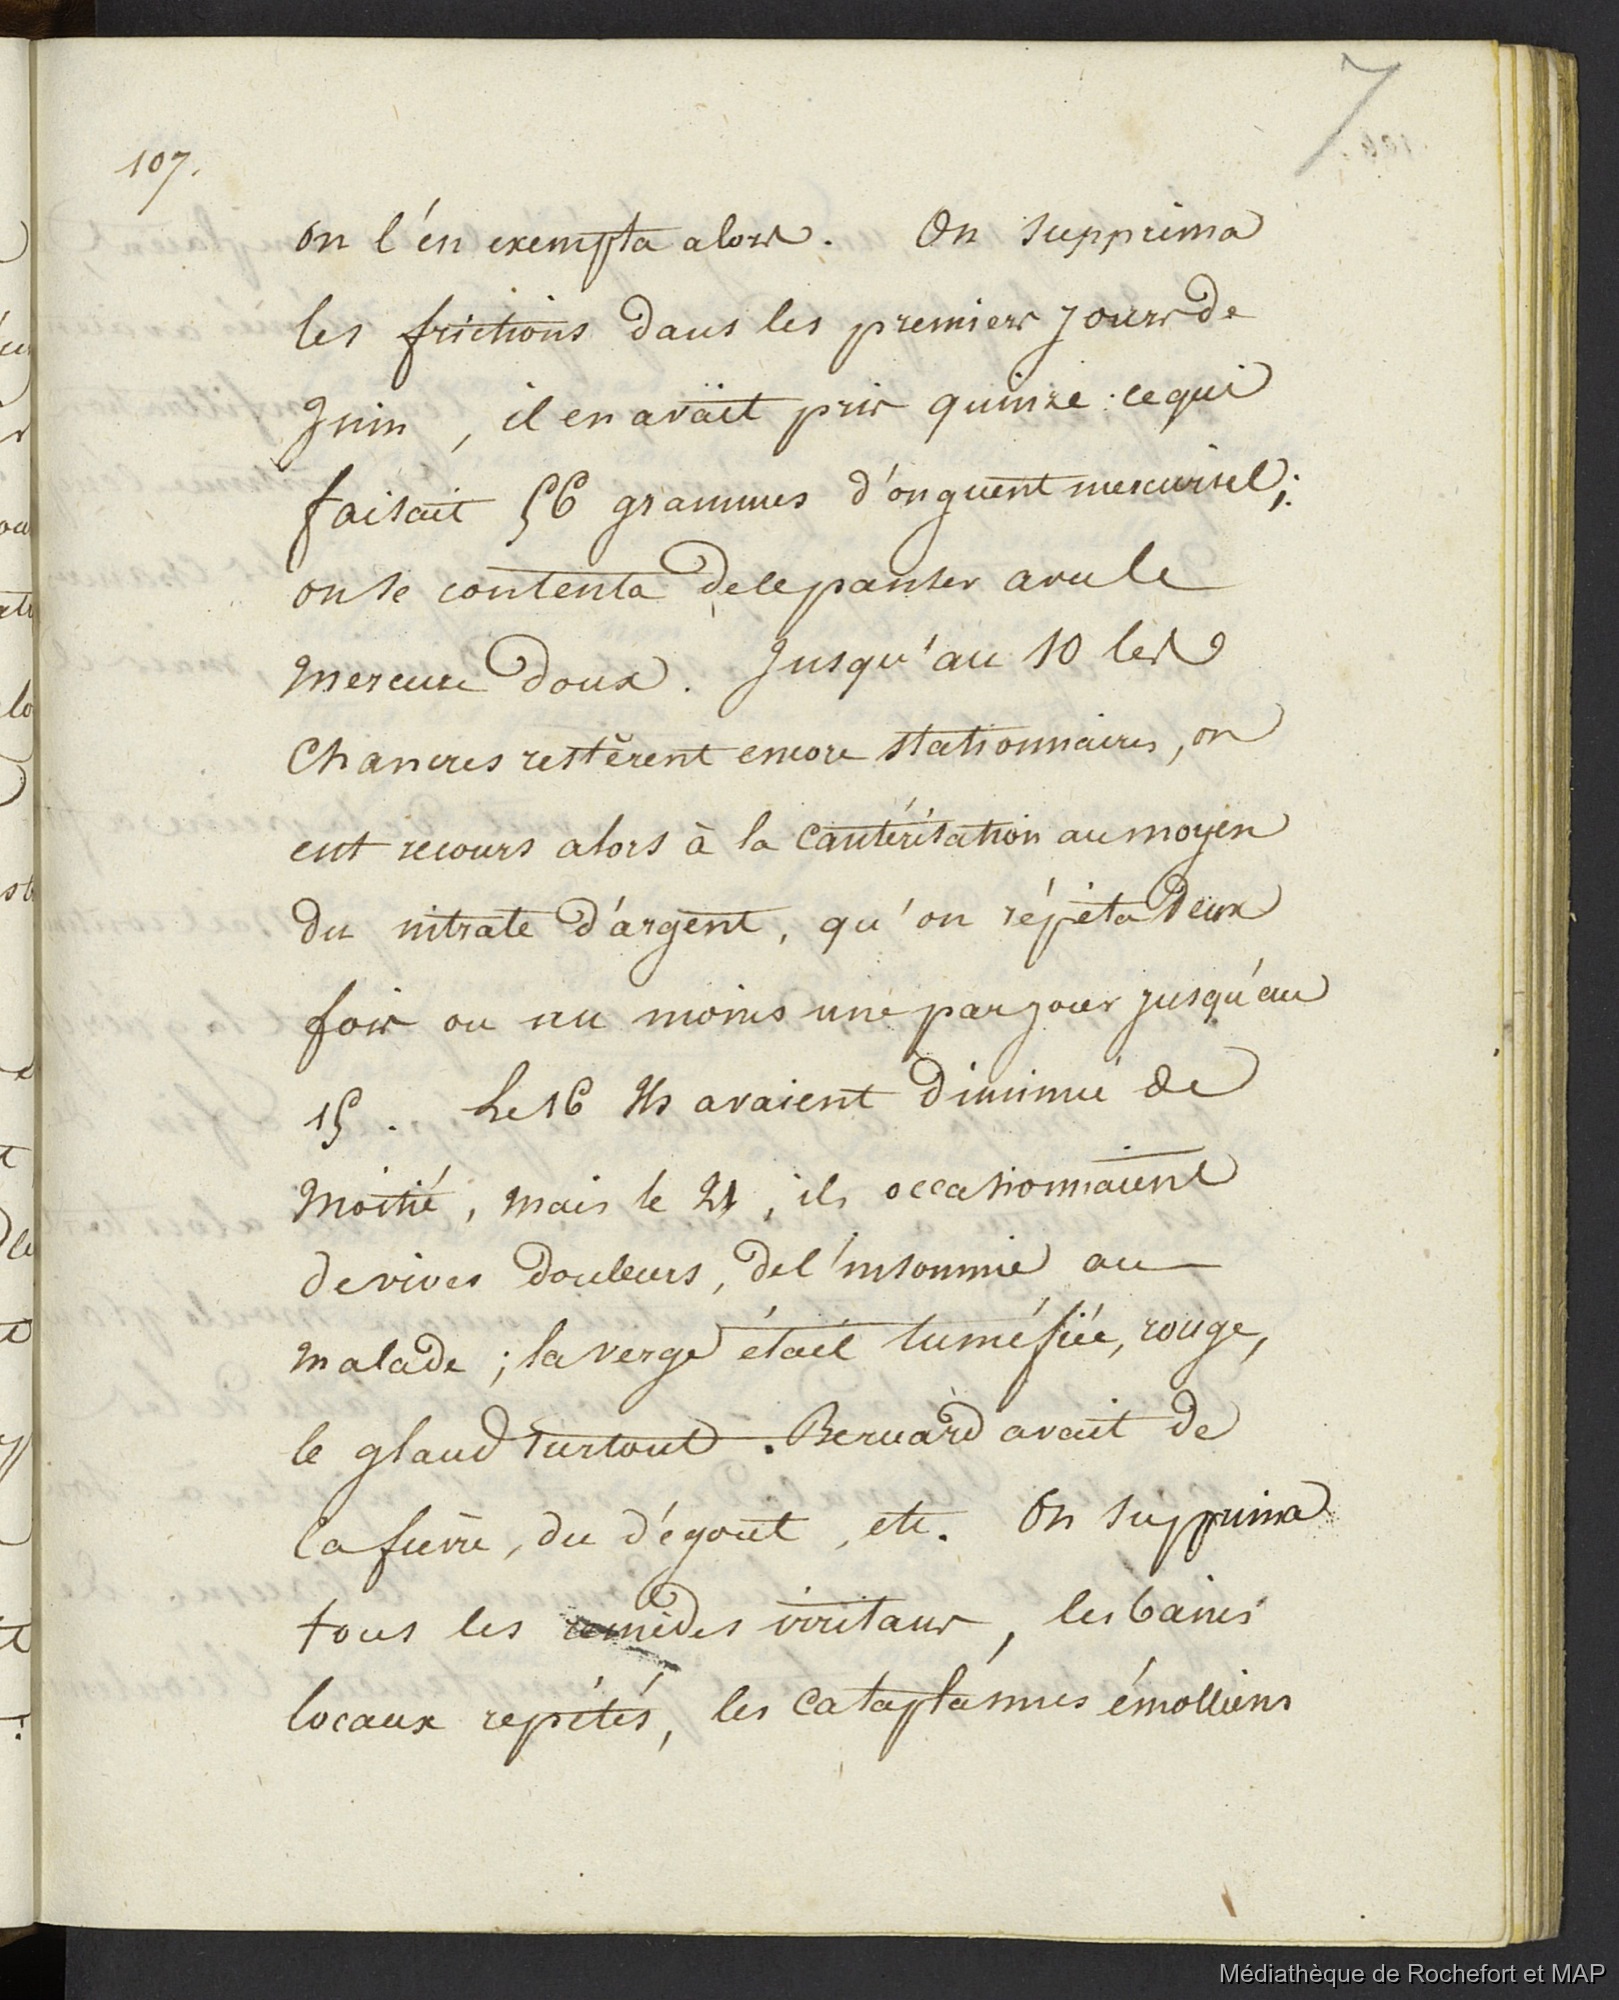 7
107.
on l'en exempta alors. On supprima
les frictions dans les premiers jours de
Juin, il en avait pris quinze : ce qui
faisait 56 grammes d'onguent mercuriel;
on se contenta de le panser avec le
mercure doux. Jusqu'au 10 les
Chancres restèrent encore stationnaires, on
eut recours alors à la cautérisation au moyen
du nitrate d'argent, qu'on répéta deux
fois ou au moins une par jour jusqu'au
15. Le 16 Ils avaient diminué de
Moitié, mais le 21, ils occasionnaient
de vives douleurs, de l'insomnie au
malade ; la verge était tuméfiée, rouge,
le gland surtout. Bernard avait de
la fièvre, du dégout, etc. On supprima
tous les remèdes irritans, les bains
locaux repétés, les cataplásmes émolliens
Médiathèque de Rochefort et MAP